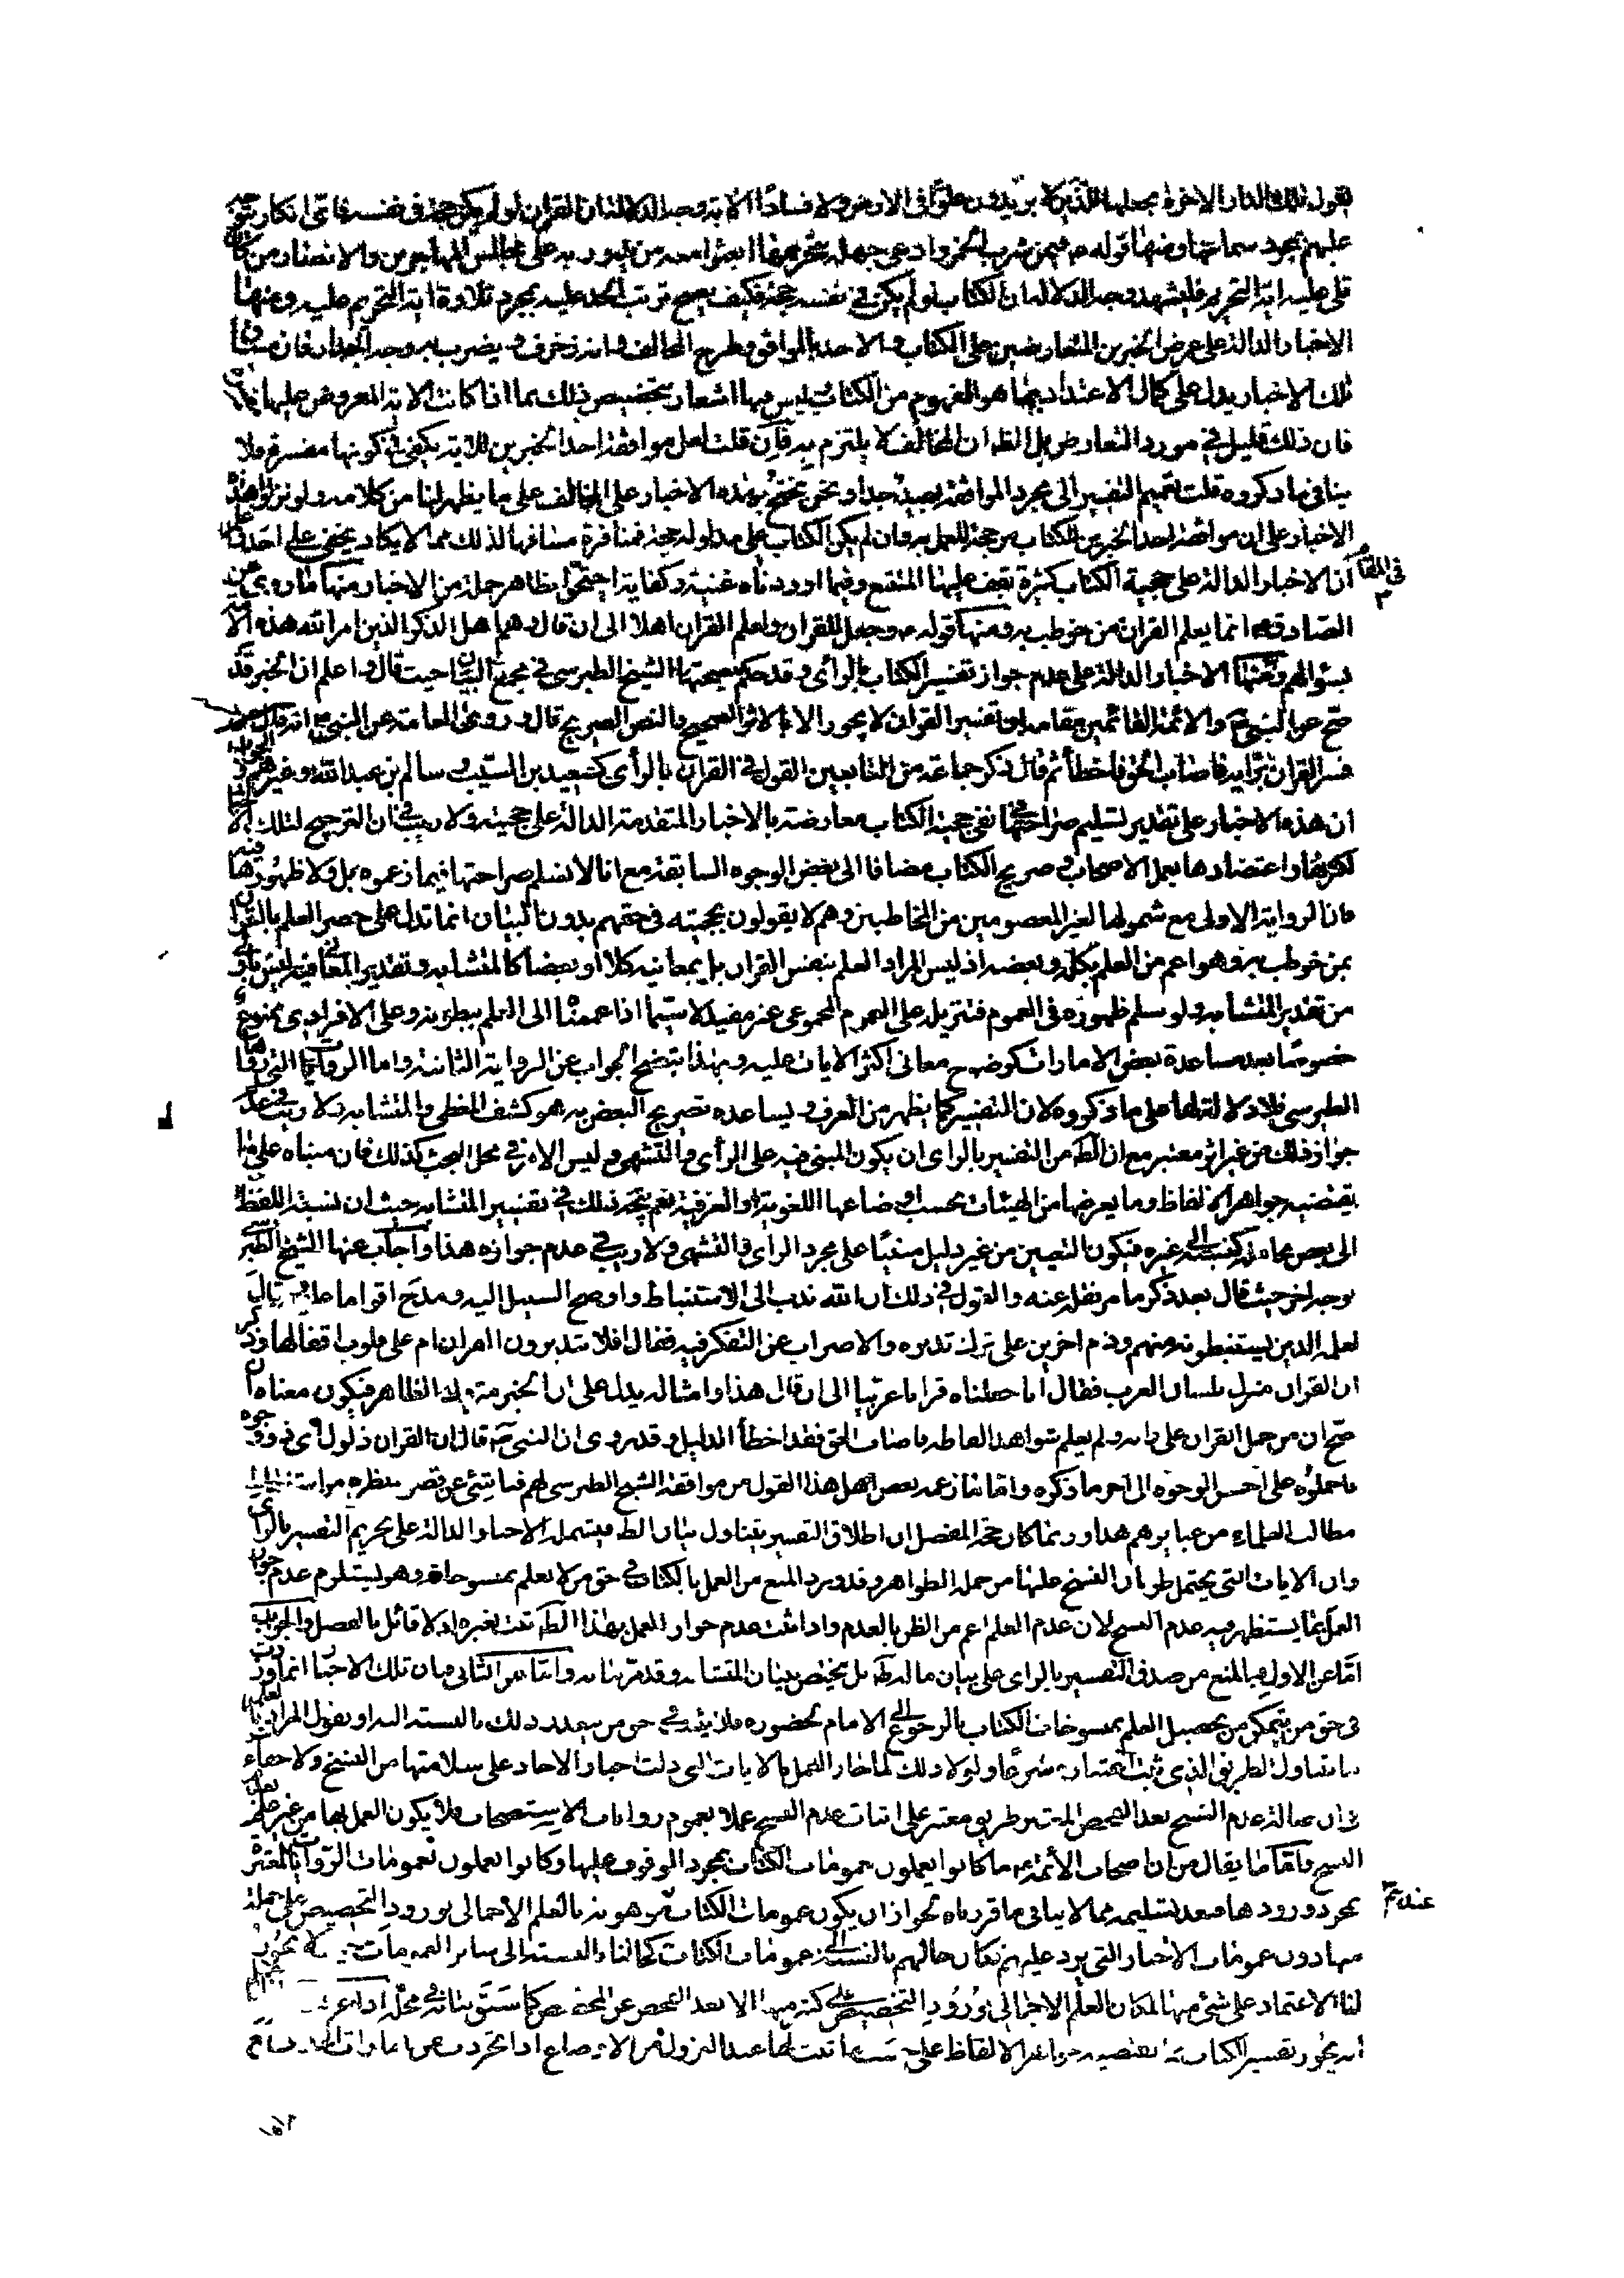 يقول تلك الدار الاخرة نجعلها للذين لا يريدون علوا في الارض ولا فسادا الاية وجه الدلالة ان القران لو لم يكن حجة في نفسه فاى انكار يتوجه
عليهم بمجرد سماعها ومنها قوله فيمن شرب الخمر وادعى جهله بتحريمها ابعثوا معه من يدور به على مجالس المهاجرين والانصار من كان
تلى عليه اية التحريم فليشهد وجه الدلالة ان الكتاب لو لم يكن في نفسه حجة فكيف يصح ترتب الحد عليه بمجرد تلاوة اية التحريم عليه ومنها
الاخبار الدالة على عرض الخبرين المتعارضين على الكتاب والاخذ بالموافق وطرح المخالف وانه زخرف ويضرب به وجه الجدار فان مساق
تلك الاخبار يدل على كمال الاعتداد بما هو المفهوم من الكتاب وليس فيها اشعار بتخصيص ذلك بما اذا كانت الاية المعروض عليها
فان ذلك قليل في مورد التعارض بل الظ ان المخالف لا يلتزم به فان قلت لعل موافقة احد الخبرين للاية يكفى في كونها مفسرة فلا
ينافى ما ذكروه قلت تعميم التفسير الى مجرد الموافقة بعيد جدا ونحن نحتج بهذه الاخبار على المخالف على ما يظهر لنا من كلامه ولو نزلوا هذه
الاخبار على ان موافقة احد الخبرين للكتاب مرجحة للعمل به وان لم يكن الكتاب على مدلوله حجة فمنافرة مساقها لذلك مما لا يكاد يخفى على احد
ان الاخبار الدالة على حجية الكتاب كثيرة يقف عليها المتتبع وفيما اوردناه غنية وكفاية احتجوا بظاهر جملة من الاخبار منها ما روى عن
في المقام
الصادق انما يعلم القران من خوطب به ومنها قوله وجعل للقران ولعلم القران اهلا الى ان قال وهم اهل الذكر الذين امر الله هذه الامة
بسؤالهم ومنها الاخبار الدالة على عدم جواز تفسير الكتاب بالرأى وقد حكم بصحتها الشيخ الطبرسى في مجمع البيان حيث قال واعلم ان الخبر قد
صح عن النبى والائمة القائمين مقامه ان تفسير القران لا يجوز الا بالاثر الصحيح والنص الصريح قال وروى العامة عن النبى انه قال من
فسر القران برأيه فاصاب الحق فاخطأ ثم قال ذكر جماعة من التابعين القول في القران بالرأى كسعيد بن المسيب وسالم بن عبد الله وغيرهم والجواب
ان هذه الاخبار على تقدير تسليم صراحتها في نفى حجية الكتاب معارضة بالاخبار المتقدمة الدالة على حجيته ولا ريب في ان الترجيح لتلك الاخبار
لكثرتها واعتضادها بعمل الاصحاب وصريح الكتاب مضافا الى بعض الوجوه السابقة مع انا لا نسلم صراحتها فيما زعموه بل ولا ظهورها فيه
فان الرواية الاولى مع شمولها لغير المعصومين من المخاطبين وهم لا يقولون بحجيته في حقهم بدون البيان انما تدل على حصر العلم بالقران
بمن خوطب به وهو اعم من العلم بكله وبعضه اذ ليس المراد العلم بنفس القران بل بمعانيه كلا او بعضا كالمتشابه وتقدير المعانى فيه ليس باولى
من تقدير المتشابه ولو سلم ظهوره في العموم فتنزيله على العموم المجموعى غير مفيد لاسيما اذا عممنا الى العلم ببطونه وعلى الافرادى ممنوع
خصوصا بعد مساعدة بعض الامارات كوضوح معانى اكثر الايات عليه وبهذا يتضح الجواب عن الرواية الثانية واما الروايتا التى رواها
الطبرسى فلا دلالة لها على ما ذكروه لان التفسير كما يظهر من العرف ويساعده تصريح البعض به هو كشف المغطى والمتشابه ولا ريب في عدم
جواز ذلك من غير اثر معتبر مع ان الظ من التفسير بالراى ان يكون المبنى فيه على الرأى والتشهى وليس الامر في محل البحث كذلك فان مبناه على ما
يقتضيه جواهر الالفاظ وما يعرضها من الهيئات بحسب اوضاعها اللغوية او العرفية نعم يتجه ذلك في تفسير المتشابه حيث ان نسبة اللفظ
الى بعض محامله كنسبته الى غيره فيكون التعيين من غير دليل مبنيا على مجرد الراى والتشهى ولا ريب في عدم جوازه هذا واجاب عنها الشيخ الطبرسى
بوجه اخر حيث قال بعد ذكر ما مر نقله عنه والقول في ذلك ان الله ندب الى الاستنباط واوضح السبيل اليه ومدح اقواما عليه قال
لعلمه الذين يستنبطونه منهم وذم اخرين على ترك تدبره والاضراب عن التفكر فيه فقال افلا يتدبرون القران ام على قلوب اقفالها وذكر
ان القران منزل بلسان العرب فقال انا جعلناه قرانا عربيا الى ان قال هذا وامثاله يدل على ان الخبر متروك الظاهر فيكون معناه ان
صح ان من حمل القران على رايه ولم يعلم شواهد الفاظه فاصاب الحق فقد اخطأ الدليل وقد روى ان النبى قال ان القران ذلول ذو وجوه
فاحملوه على احسن الوجوه الى اخر ما ذكره واما ما زعمه بعض اهل هذا القول من موافقة الشيخ الطبرسى لهم فما ينبئ عن قصر نظره
مطالب العلماء من عبايرهم هذا وربما كان حجة المفصل ان اطلاق التفسير يتناول بيان الظ فيشمله الاخبار الدالة على تحريم التفسير بالرأى
وان الايات التى يحتمل طريان النسخ عليها من جملة الظواهر وقد ورد المنع من العمل بالكتاب في حق من لا يعلم بمنسوخاته وهو يستلزم عدم جواز
العمل بما يستظهر فيه عدم النسخ لان عدم العلم اعم من الظن بالعدم واذا ثبت عدم جواز العمل بهذا الظ ثبت بغيره اذ لا قائل بالفصل والجواب
اما عن الاول فبالمنع من صدق التفسير بالراى على بيان ما له ظ بل يختص ببيان المتشابه وقد مر بيانه واما عن الثانى فبان تلك الاخبار انما وردت
في حق من يتمكن من تحصيل العلم بمنسوخات الكتاب بالرجوع الى الامام لحضوره فلا يثبت في حق من يتعذر ذلك بالنسبة اليه او نقول المراد بالعلم
ما يتناول الطريق الذى ثبت اعتباره شرعا ولولا ذلك لما جاز العمل بالايات التى دلت اخبار الاحاد على سلامتها من النسخ ولا خفاء
في ان اصالة عدم النسخ بعد الفحص المعتبر طريق معتبر على اثبات عدم النسخ عملا بعموم روايات الاستصحاب فلا يكون العمل بها من غير علم
النسخ واما ما يقال من ان اصحاب الأئمة ما كانوا يعملون بعمومات الكتاب بمجرد الوقوف عليها وكانوا يعملون بعمومات الروايات المعتبرة
عندهم
بمجرد ورودها فبعد تسليمه مما لا ينافى ما قررناه لجواز ان يكون عمومات الكتاب موهونة بالعلم الاجمالى بورود التخصيص على جملة
منها دون عمومات الاخبار التى يرد عليهم فكان حالهم بالنسبة الى عمومات الكتاب كحالنا بالنسبة الى سائر العمومات لا يجوز
لنا الاعتماد على شئ منها لمكان العلم الاجمالى بورود التخصيص على كثير منها الا بعد الفحص عن المخصص كما سبق بيانه في محله
انه يجوز تفسير الكتاب بما يقتضيه جواهر الالفاظ على حسب ما ثبت لها عند النزول من الاوضاع اذا تجردت عن امارات